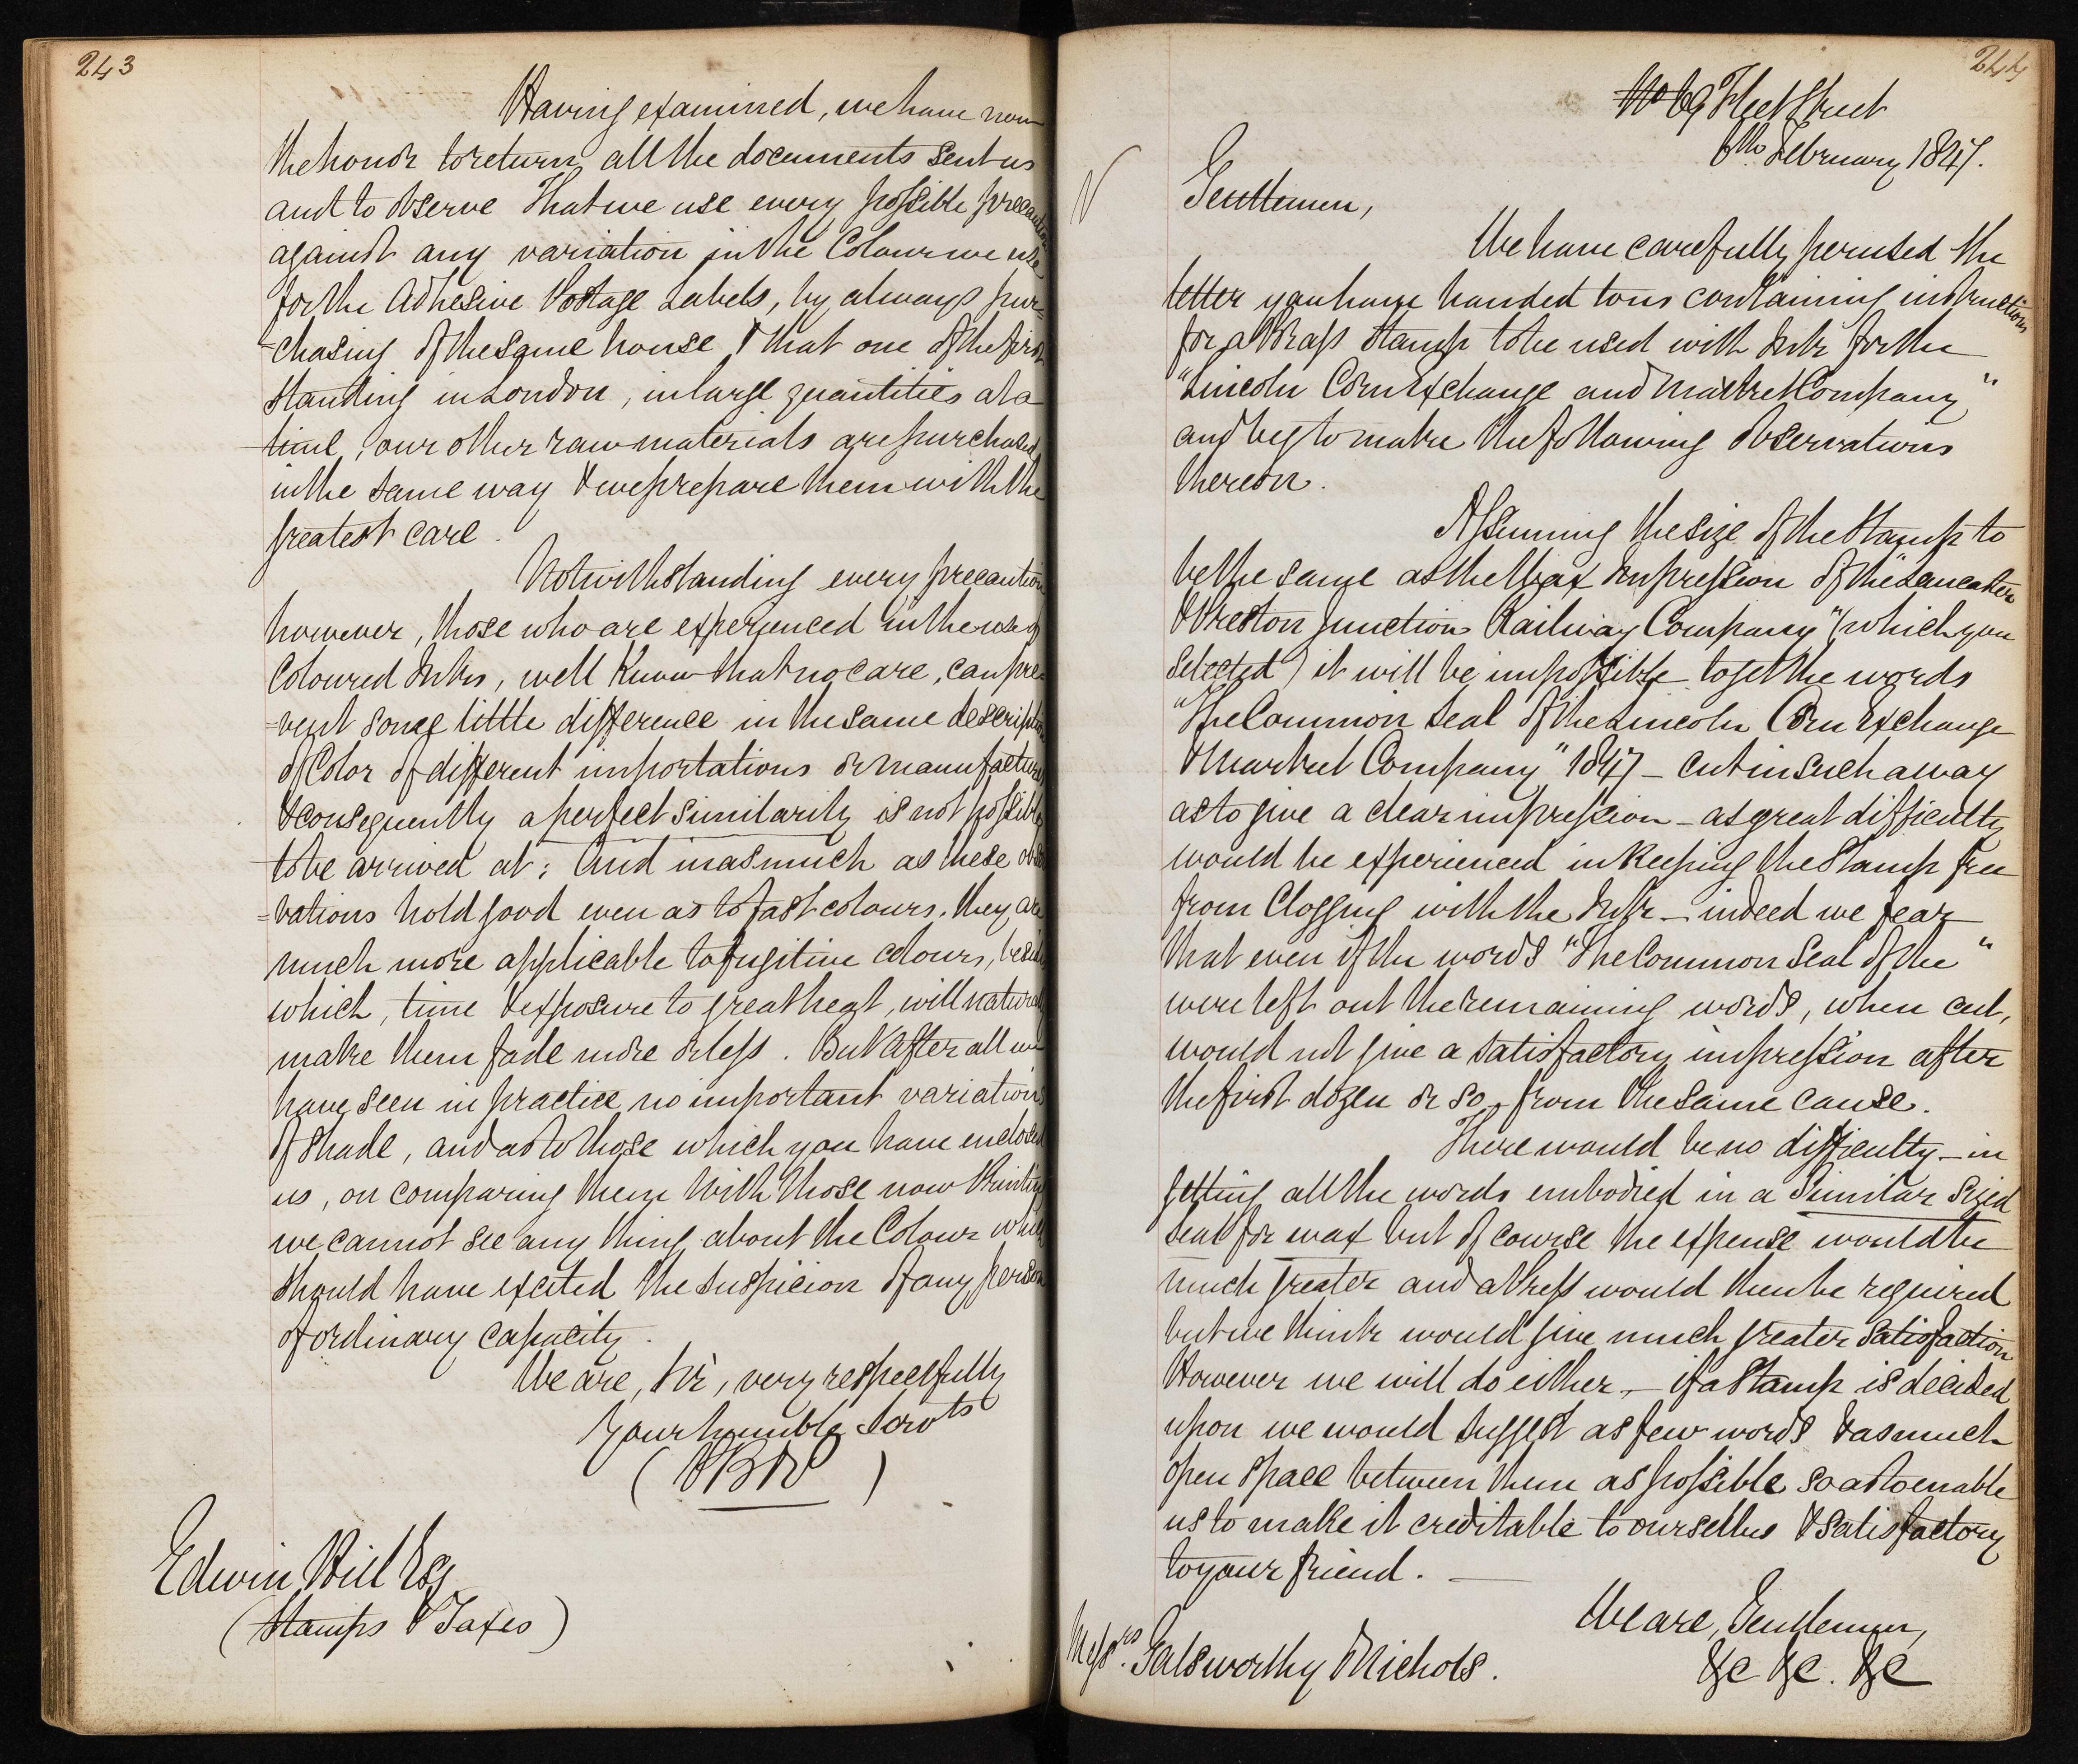 243
Having examined, we have now
the honor to return all the documents sent us
and to observe that we use every possible precaution
against any variation in the Colour we use
for the Adhesive Postage Labels, by always pur=
=chasing of the same house & that one of the first
standing in London, in large quantities at a
time; our other raw materials are purchased
in the same way & we prepare them with the
greatest care.
Notwithstanding every precaution
however, those who are experienced in the use of
Coloured Inks, well know that no care, can pre=
=vent some little difference in the same description
of Color of different importations or manufacture
& consequently a perfect similarity is not possible
to be arrived at: And inasmuch as these obser
=vations hold good even as to fast colours, they are
much more applicable to fugitive colours, beside
which, time & exposure to great heat, will naturally
make them fade more or less. But after all we
have seen in practice no important variations
of shade, and as to those which you have enclosed
us, on comparing them with those now Printing
we cannot see any thing about the Colour which
should have excited the suspicion of any person
of ordinary capacity.
We are, Sir, very respectfully
Your humble Servts
(PBP)
Edwin Hill Esq
(Stamps & Taxes)
244
No 69 Fleet Street
6th February 1847.
Gentlemen,
We have carefully perused the
letter you have handed to us containing instructions
for a Brass Stamp to be used with Ink for the
"Lincoln Corn Exchange and Market Company"
and beg to make the following observations
thereon.
Assuming the size of the Stamp to
be the same as the Wax Impression of the "Lancaster
& Preston Junction Railway Company" (which you
selected) it will be impossible to get the words
"The Common Seal of the Lincoln Corn Exchange
& Market Company" 1847 - cut in such a way
as to give a clear impression - as great difficulty
would be experienced in keeping the Stamp free
from Clogging with the Ink - indeed we fear
that even if the words "The Common Seal of the"
were left out the remaining words, when cut,
would not give a satisfactory impression after
the first dozen or so, from the same cause.
There would be no difficulty - in
getting all the words embodied in a similar sized
seal for wax but of course the expense would be
much greater and a Press would then be required
but we think would give much greater satisfaction
However we will do either, - if a Stamp is decided
upon we would suggest as few words & as much
open space between them as possible so as to enable
us to make it creditable to ourselves & satisfactory
to your friend. -
We are, Gentlemen,
&c &c. &c
Messrs. Galsworthy & Nichols.